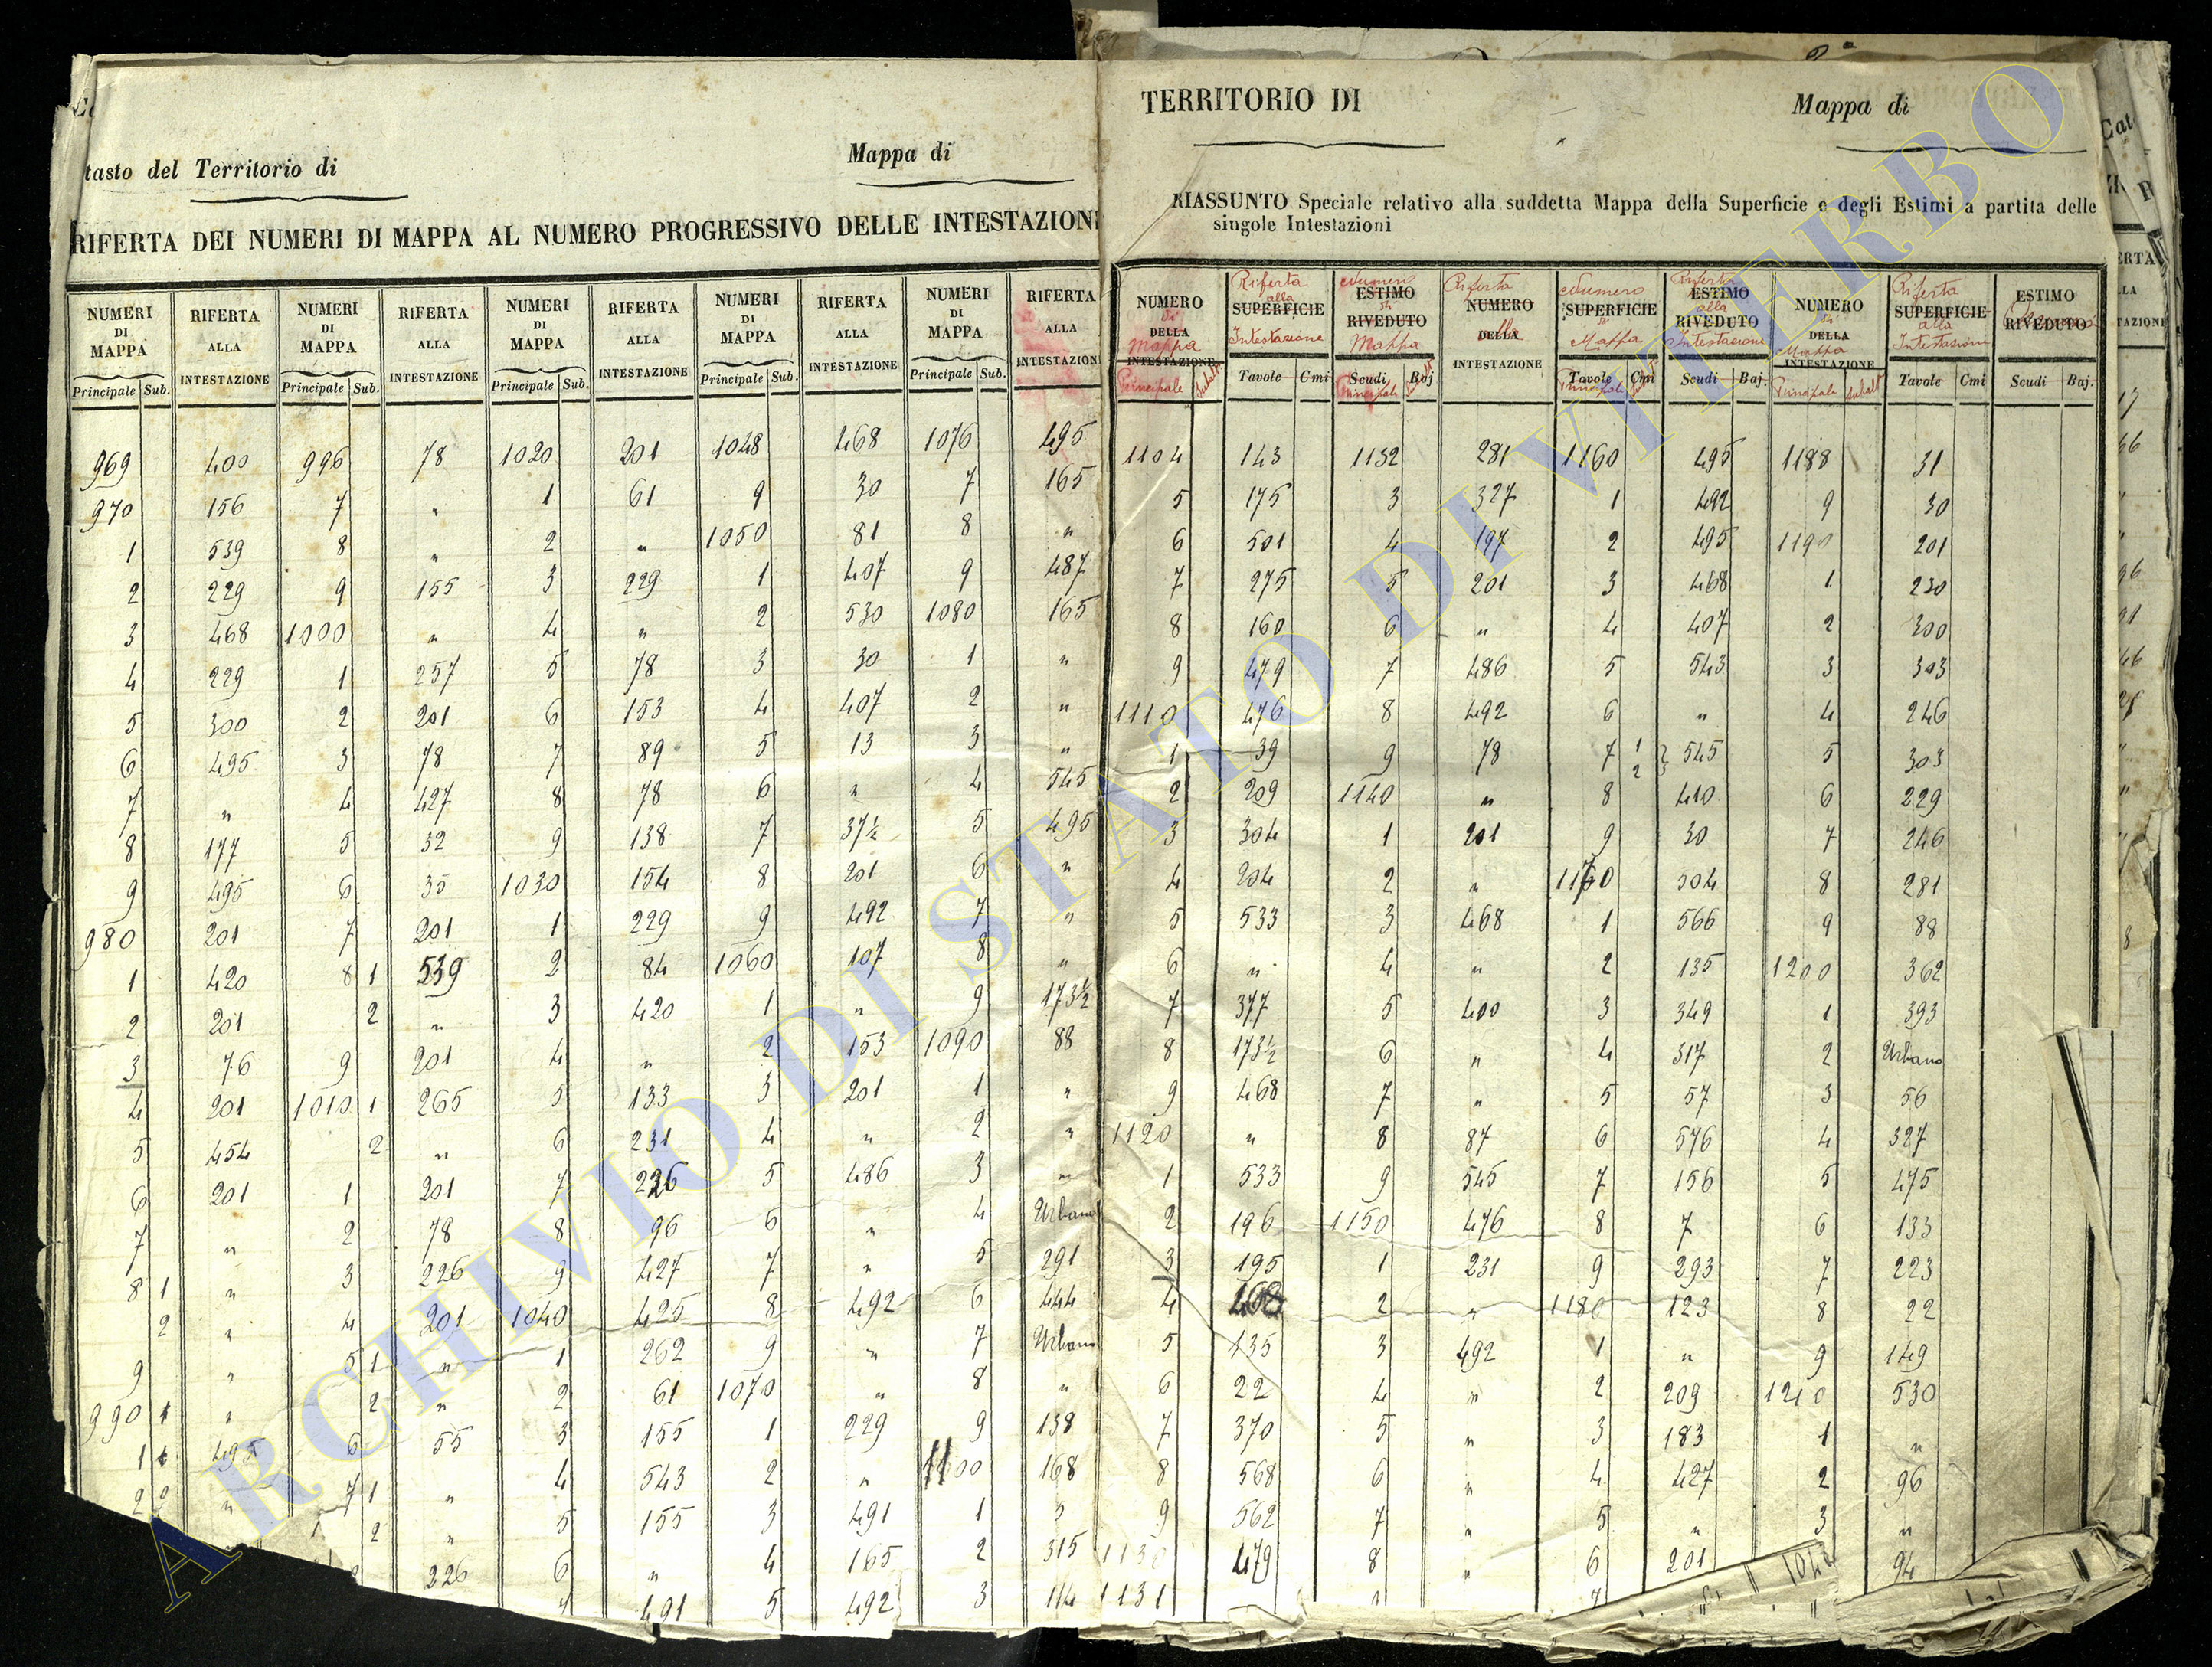 tasto del Territorio di
Mappa di
RIFERTA DEI NUMERI DI MAPPA AL NUMERO PROGRESSIVO DELLE INTESTAZIONI
NUMERI DI MAPPA RIFERTA ALLA INTESTAZIONE NUMERI DI MAPPA RIFERTA ALLA INTESTAZIONE NUMERI DI MAPPA RIFERTA ALLA INTESTAZIONE NUMERI DI MAPPA RIFERTA ALLA INTESTAZIONE NUMERI DI MAPPA RIFERTA ALLA INTESTAZION
Principale Sub. Principale Sub. Principale Sub. Principale Sub. Principale Sub.
969 400 996 78 1020 201 1048 468 1076 495
970 156 7 " 1 61 9 30 7 165
1 539 8 " 2 " 1050 81 8 "
2 229 9 155 3 229 1 407 9 487
3 468 1000 " 4 " 2 530 1080 165
4 229 1 257 5 78 3 30 1 "
5 300 2 201 6 153 4 407 2 "
6 495 3 78 7 89 5 13 3 "
7 " 4 427 8 78 6 " 4 545
8 177 5 32 9 138 7 37½ 5 495
9 495 6 35 1030 154 8 201 6 "
980 201 7 201 1 229 9 492 7 "
1 420 8 1 539 2 84 1060 107 8 "
2 201 2 " 3 420 1 " 9 173½
3 76 9 201 4 " 2 153 1090 88
4 201 1010 1 265 5 133 3 201 1 "
5 454 2 " 6 231 4 " 2 "
6 201 1 201 7 226 5 486 3 "
7 " 2 78 8 96 6 " 4 Urbano
8 1 " 3 226 9 427 7 " 5 291
2 " 4 201 1040 425 8 492 6 444
9 " 5 1 " 1 262 9 " 7 Urbano
990 1 " 2 " 2 61 1070 " 8 "
1 495 6 55 3 155 1 229 9 138
2 2 " 7 1 " 4 543 2 " 1100 168
2 " 5 155 3 491 1 "
226 6 " 4 165 2 315
7 491 5 492 3 114
TERRITORIO DI
Mappa di
RIASSUNTO Speciale relativo alla suddetta Mappa della Superficie e degli Estimi a partita delle
singole Intestazioni
NUMERO DELLA INTESTAZIONE SUPERFICIE ESTIMO RIVEDUTO NUMERO DELLA INTESTAZIONE SUPERFICIE ESTIMO RIVEDUTO NUMERO DELLA INTESTAZIONE SUPERFICIE ESTIMO RIVEDUTO
di Mappa Riferta alla Intestazione Numero di Mappa Riferta alla Numero di Mappa Riferta alla Intestazione di Mappa Riferta alla Intestazione
Tavole Cmi Scudi Baj Tavole Cmi Scudi Baj. Tavole Cmi Scudi Baj.
Principale Subalt Principale Principale Principale Subalt
1104 143 1132 281 1160 495 1188 31
5 175 3 327 1 492 9 30
6 501 4 197 2 495 1190 201
7 275 5 201 3 468 1 230
8 160 6 " 4 407 2 300
9 479 7 486 5 543 3 303
1110 476 8 492 6 " 4 246
1 39 9 78 7 1 2 } 545 5 303
2 209 1140 " 8 410 6 229
3 304 1 201 9 30 7 246
4 204 2 " 1170 304 8 281
5 533 3 468 1 566 9 88
6 " 4 " 2 135 1200 362
7 377 5 400 3 349 1 393
8 173½ 6 " 4 317 2 Urbano
9 468 7 " 5 57 3 56
1120 " 8 87 6 576 4 327
1 533 9 545 7 156 5 475
2 196 1150 476 8 7 6 133
3 195 1 231 9 293 7 223
4 468 2 " 1180 123 8 22
5 135 3 492 1 " 9 149
6 22 4 " 2 209 1210 530
7 370 5 " 3 183 1 "
8 568 6 " 4 427 2 96
9 562 7 " 5 " 3 "
1130 479 8 " 6 201 94
1131
ARCHIVIO DI STATO DI VITERBO